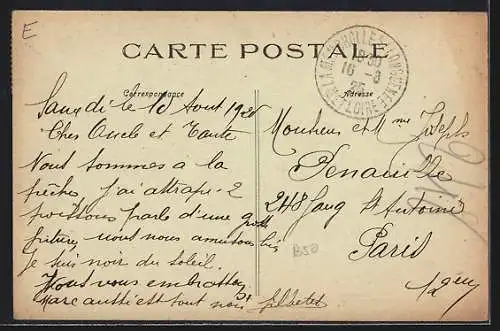 E
CARTE POSTALE
Correspondance
Adresse
16-8
25
Samedi le 15 Aout 1925
Cher Oncle et Tante
Nous sommes a la
pêche, j'ai attrapé 2
poissons parlé d'une
nous nous amusons bien
Je suis noir du soleil.
Nous vous embrassons
Marc aussi est tout noir
Monsieur et Mme Joseph
Penauille
248 Faug St Antoine
Paris
B50